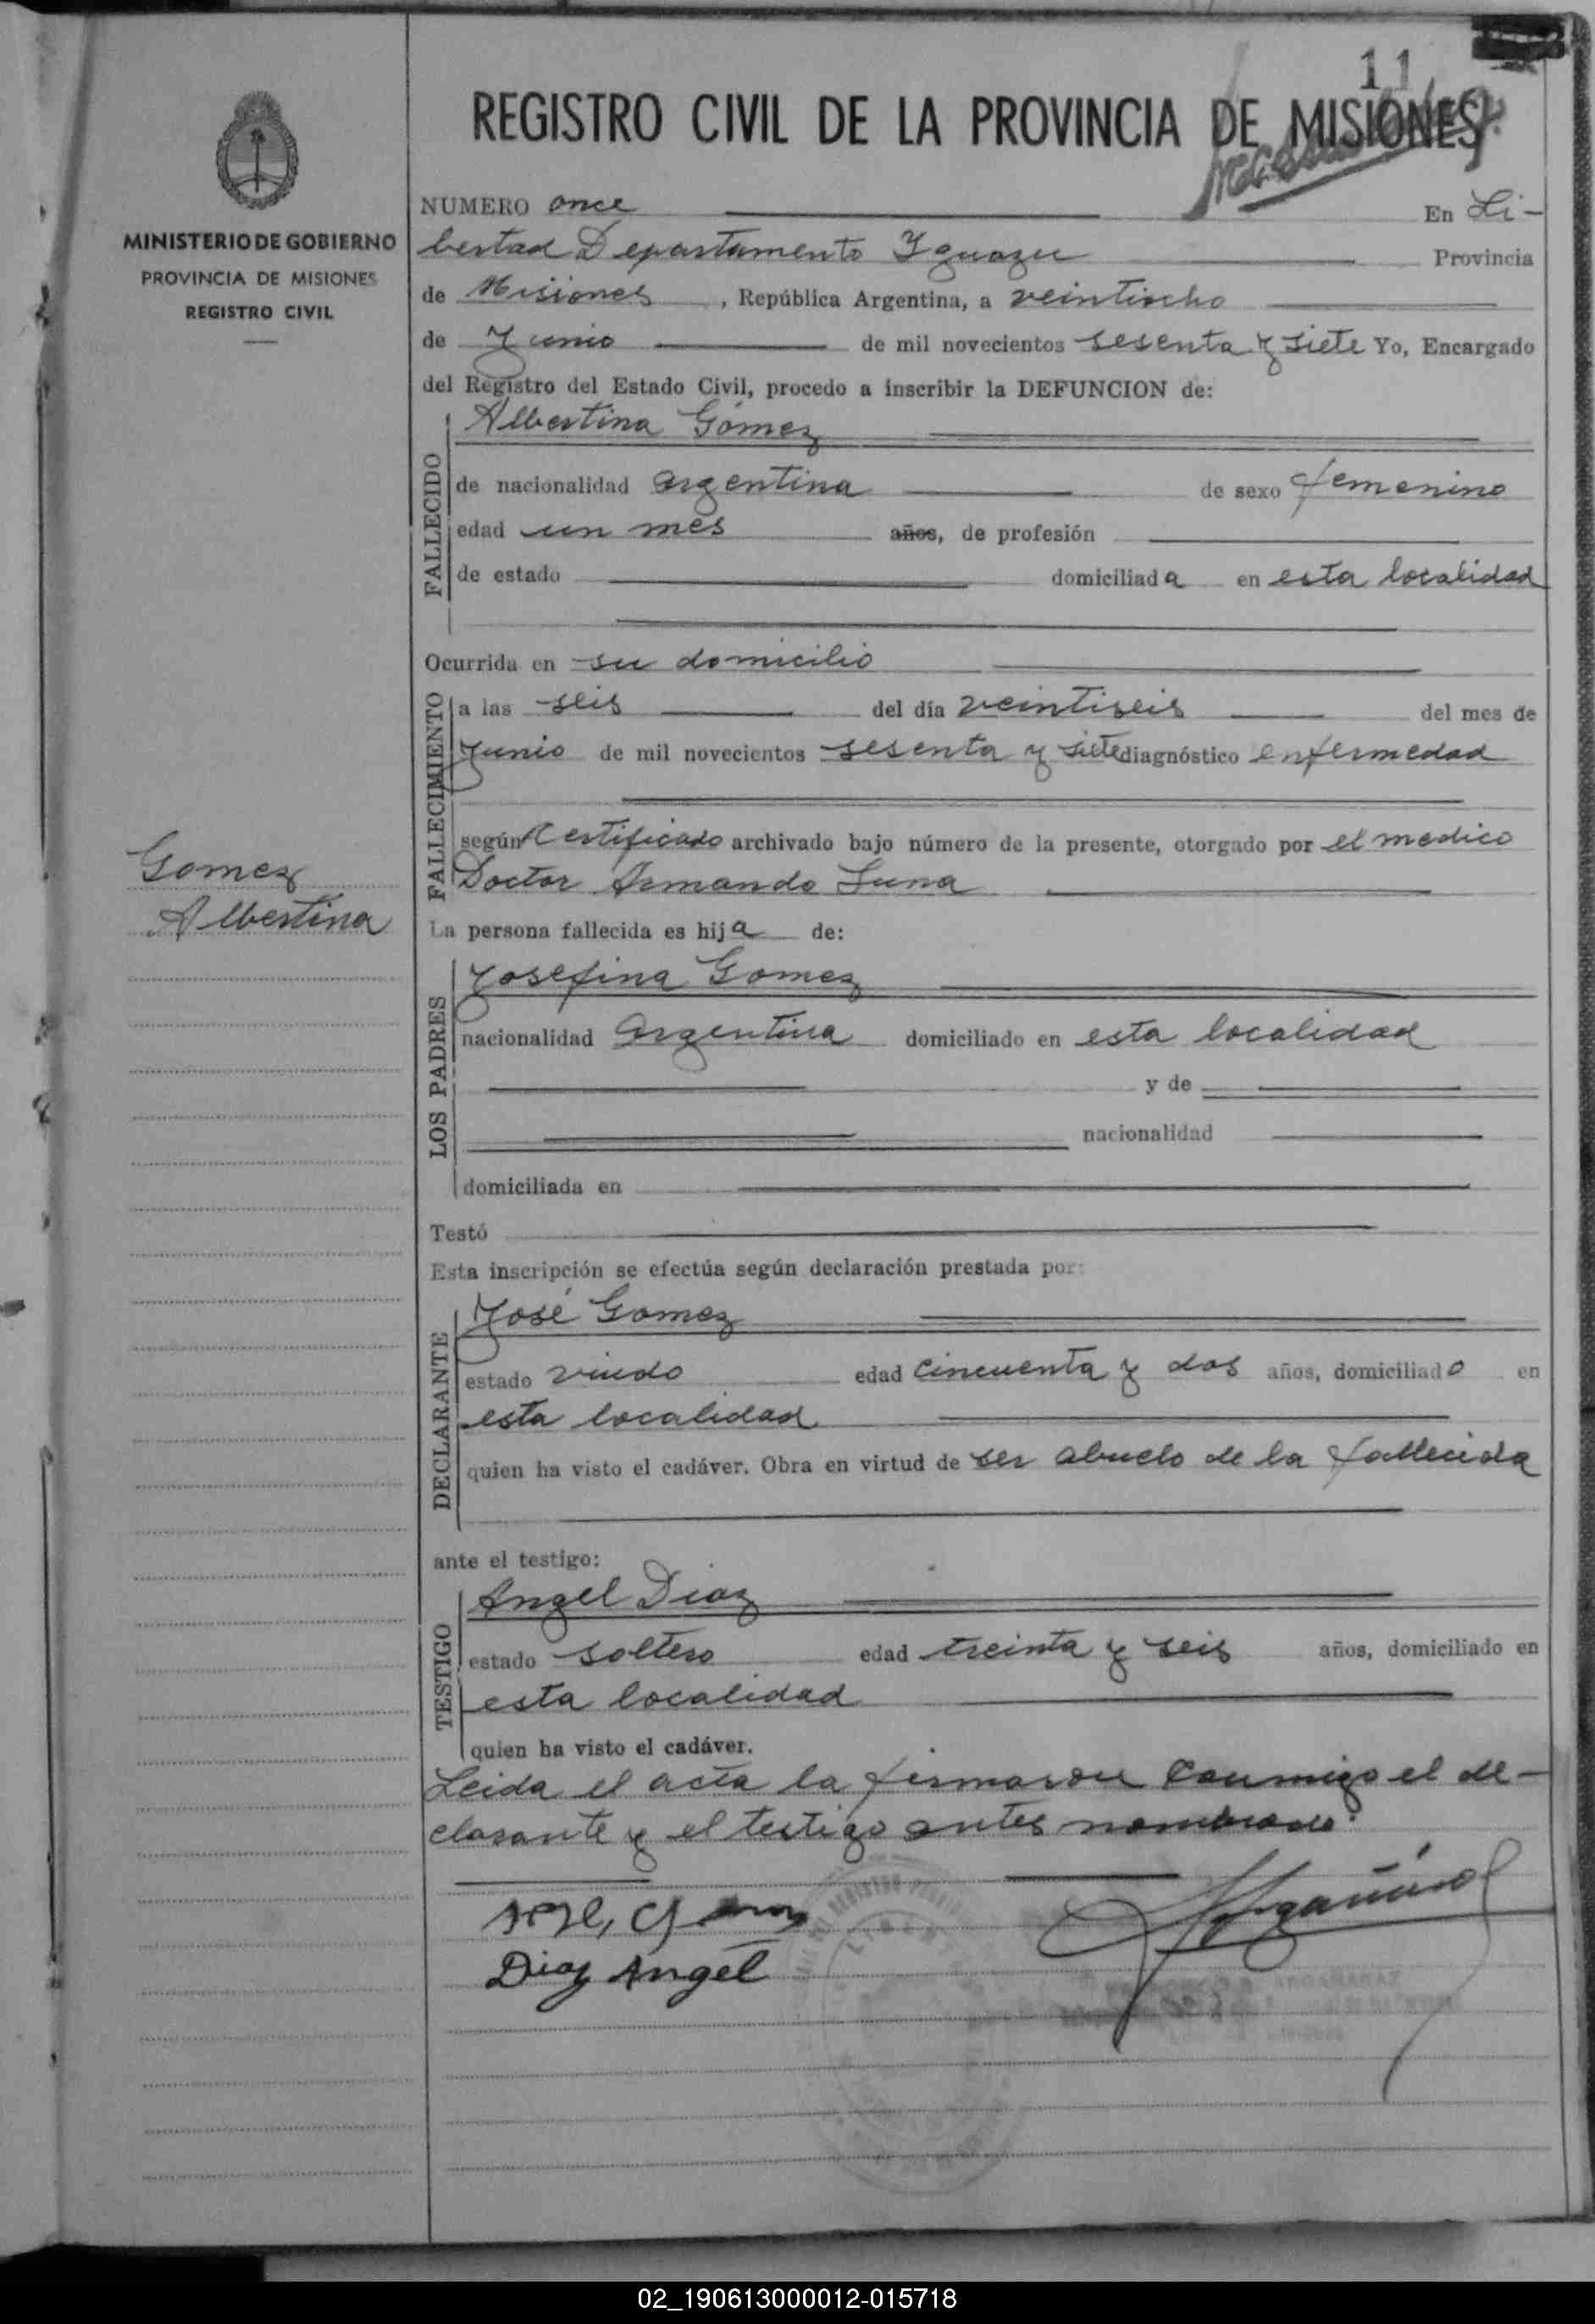 11
REGISTRO CIVIL DE LA PROVINCIA DE MISIONES
MINISTERIO DE GOBIERNO
PROVINCIA DE MISIONES
REGISTRO CIVIL
Gomez
Albertina
NUMERO once En Li-
bertad Departamento Yguazu Provincia
de Misiones, República Argentina, a veintiocho
de Junio de mil novecientos sesenta y siete Yo, Encargado
del Registro del Estado Civil, procedo a inscribir la DEFUNCION de:
FALLECIDO
Albertina Gómez
de nacionalidad argentina de sexo femenino
edad un mes años, de profesión
de estado domiciliada en esta localidad
Ocurrida en su domicilio
FALLECIMIENTO
a las seis del día veintiseis del mes de
Junio de mil novecientos sesenta y siete diagnóstico enfermedad
según certificado archivado bajo número de la presente, otorgado por el medico
Doctor Armando Luna
La persona fallecida es hija de:
LOS PADRES
Josefina Gomez
nacionalidad argentina domiciliado en esta localidad
y de
nacionalidad
domiciliada en
Testó
Esta inscripción se efectúa según declaración prestada por:
DECLARANTE
José Gomez
estado viudo edad cincuenta y dos años, domiciliado en
esta localidad
quien ha visto el cadáver. Obra en virtud de ser abuelo de la fallecida
ante el testigo:
TESTIGO
Angel Diaz
estado soltero edad treinta y seis años, domiciliado en
esta localidad
quien ha visto el cadáver.
Leida el acta la firmaron conmigo el de-
clarante y el testigo antes nombrado.
Diaz Angel
02_190613000012-015718